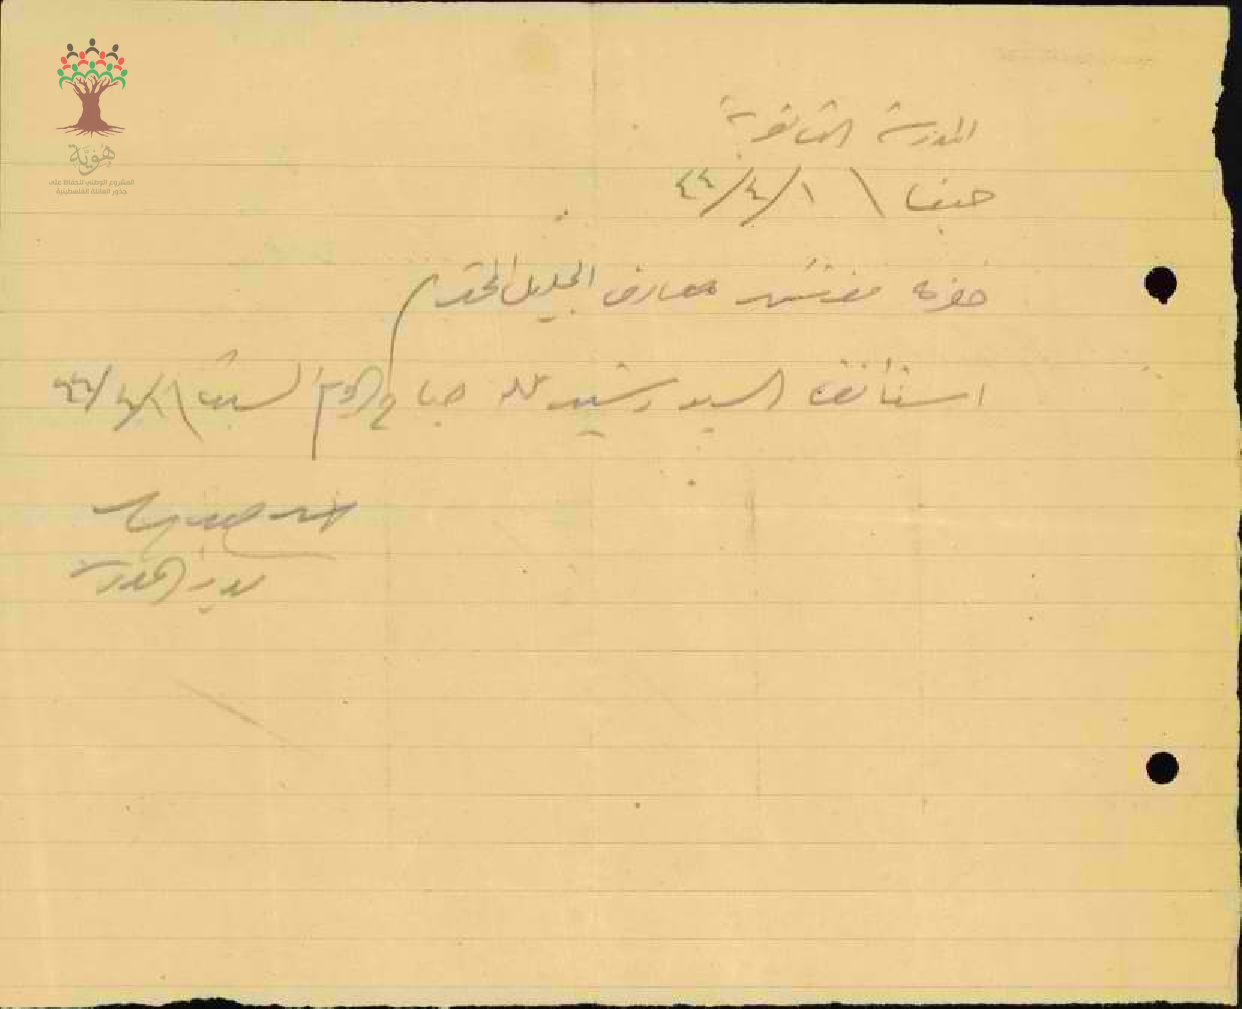 هُوِيَّة
المشروع الوطني للحفاظ على
جذور العائلة الفلسطينية
المدرسة الثانوية
حيفا \ ١/٤/٤٤
حضرة مفتش معارف الجليل المحترم
استأنف السيد رشيد عمله صباح اليوم السبت ١/٤/٤٤
مدير المدرسة